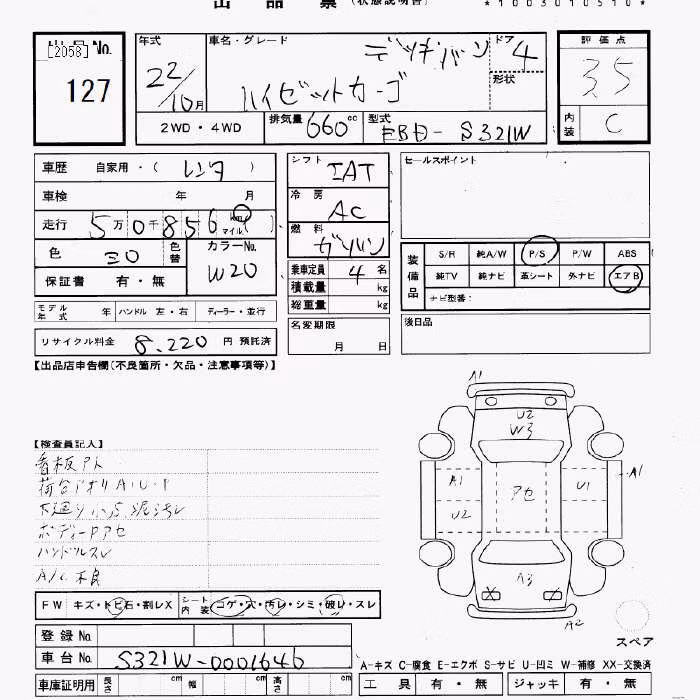 出品票 (状態説明書)
*1003010510*
出品No. [2058]
127
年式 22/10月
車名・グレード デッキバン ハイゼットカーゴ
ドア 4
形状
評価点 3.5
内装 C
2WD・4WD 排気量 660cc 型式 EBD-S321W
車歴 自家用・( レンタ )
車検 年 月
走行 5万0千856 km マイル
色 シロ 色替 カラーNo. W20
保証書 有・無
モデル年式 年 ハンドル 左・右 ディーラー・並行
リサイクル料金 8,220円 預託済
シフト IAT
冷房 AC
燃料 ガソリン
乗車定員 4名
積載量 kg
総重量 kg
名変期限 月 日
セールスポイント
装備品 S/R 純A/W P/S P/W ABS
純TV 純ナビ 革シート 外ナビ エアB
ナビ型番:
後日品
【出品店申告欄(不良箇所・欠品・注意事項等)】
【検査員記入】
看板アト
荷台 A・U・
下廻り 小S 泥汚レ
ボディーPアセ
ハンドルスレ
A/C 不良
FW キズ・トビ石・割レX シート内装 コゲ・穴・汚レ・シミ・破レ・スレ
登録No.
車台No. S321W-0001646
車庫証明用 長さ cm 幅 cm 高さ cm
A1
U2
W3
A1
U2
アセ
U1
A1
A3
X X
A2
スペア
A-キズ C-腐食 E-エクボ S-サビ U-凹ミ W-補修 XX-交換済
工具 有・無 ジャッキ 有・無